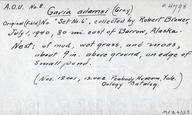 A.O.U. No. 8. Gavia adamsi (Gray) # 4798
Original (Field) No. "Set No. 6", collected by Robert
July 1, 1940, 80 mi. east of Barrow, Alaska.
Nest: of mud, wet grass, and moss,
about 9 in. above ground, on edge of
small pond.
(Nos. Peabody Museum, Yale.
Oology Catalog.